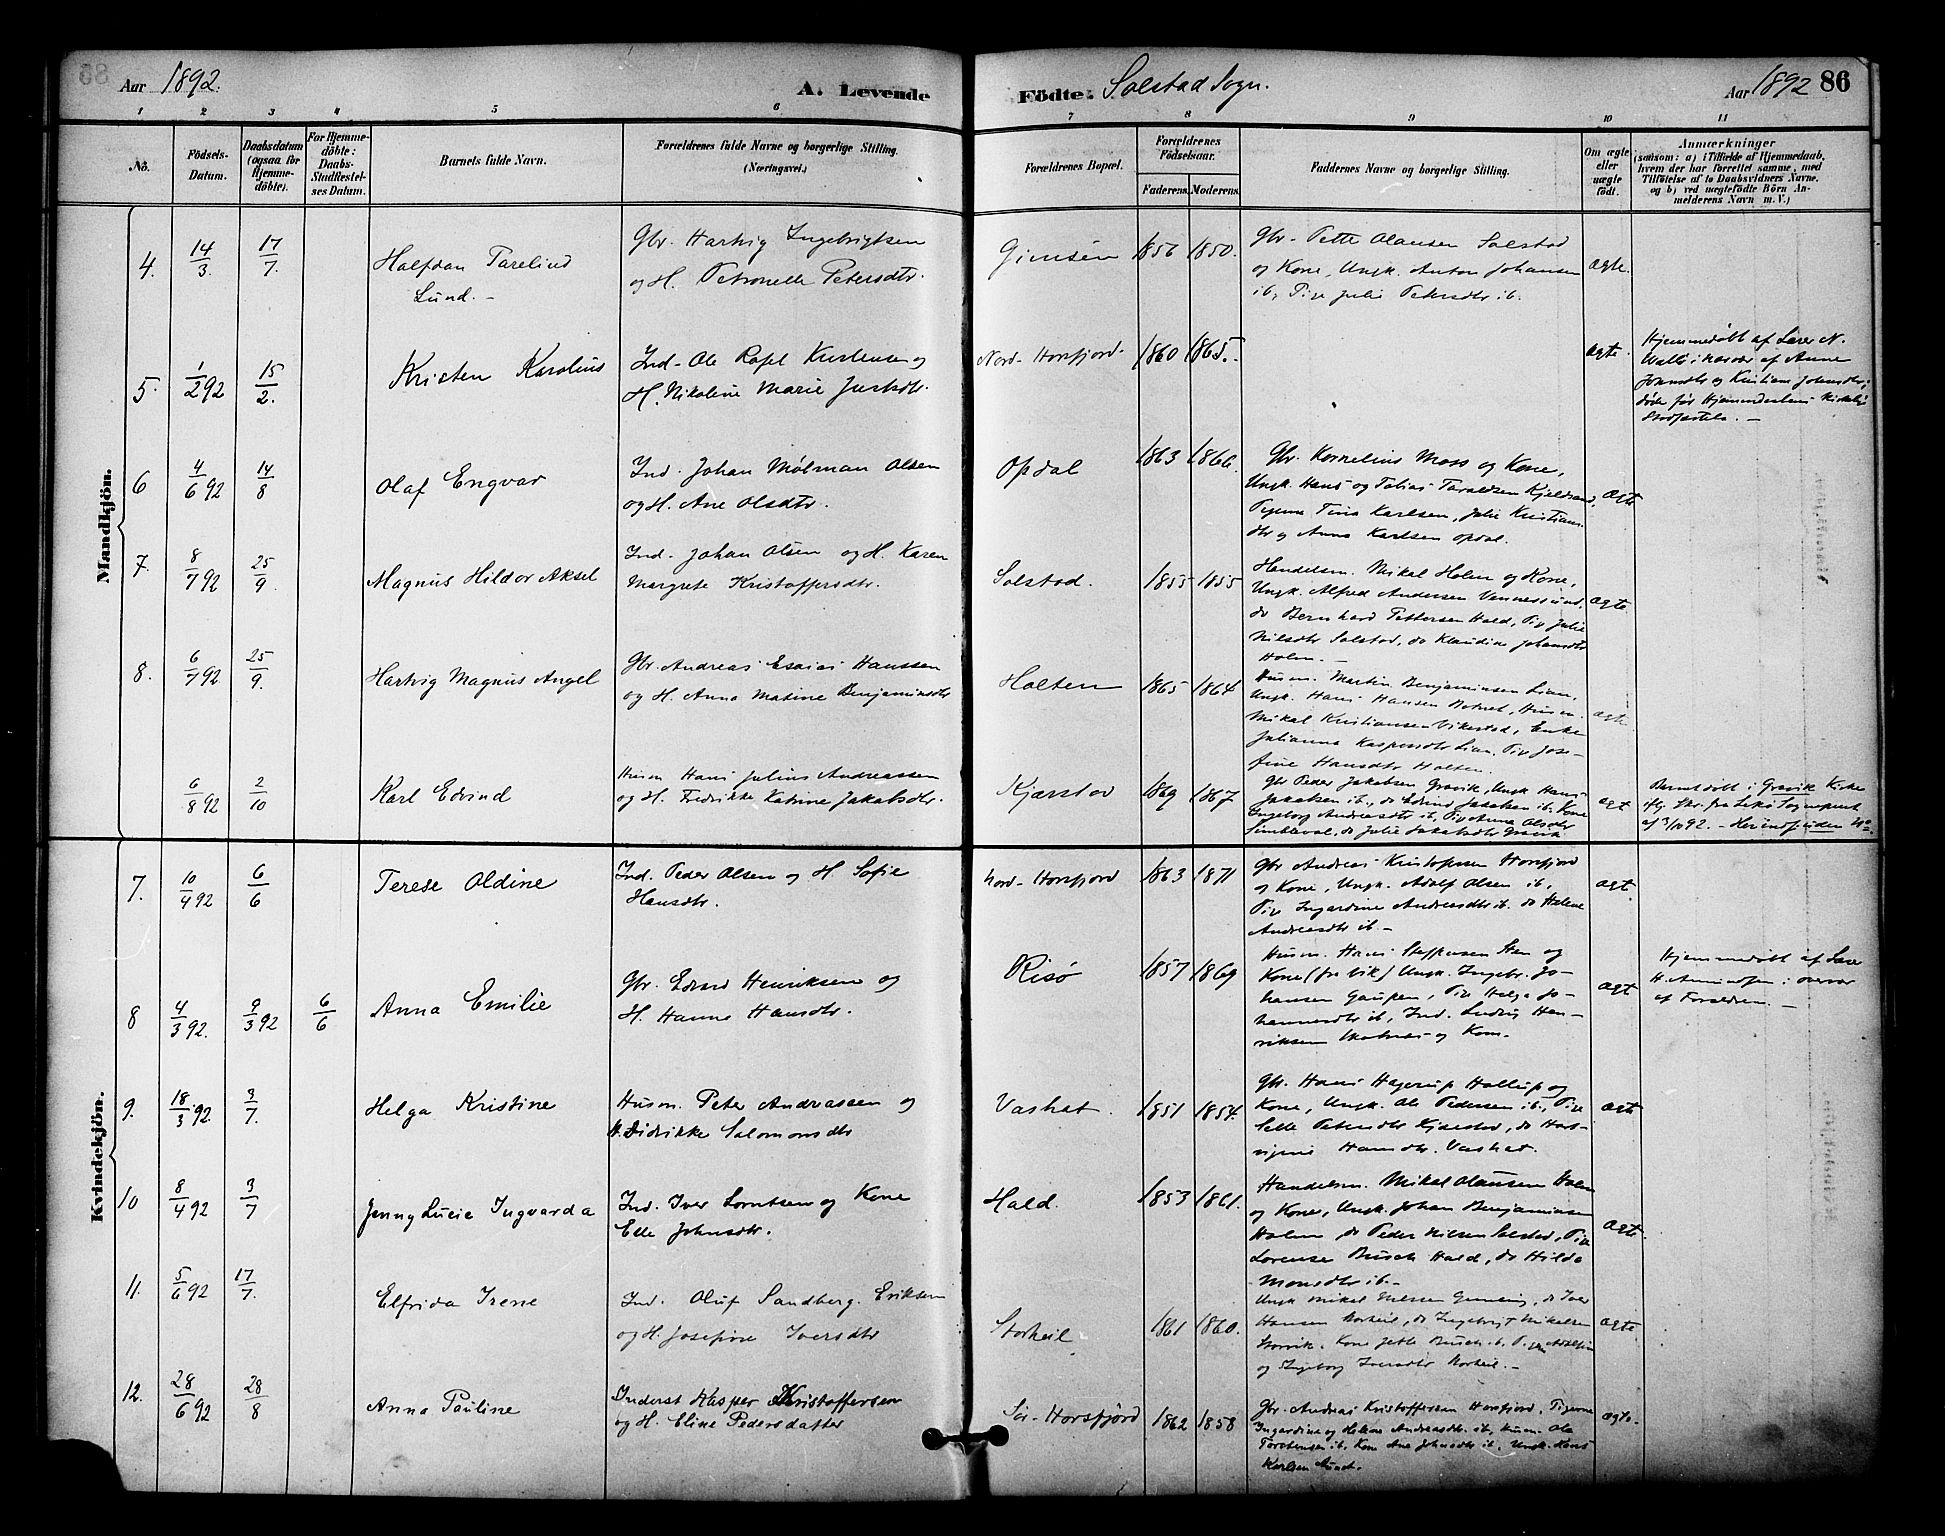 Aar 1892. A. Levende Födte. Solstad Sogn. Aar 1892 86
1 2 3 4 5 6 7 8 9 10 11
No. Födsels-Datum. Daabsdatum (ogsaa for Hjemme-döbte). For Hjemme-döbte: Daabs-Stadfæstel-ses Datum. Barnets fulde Navn. Forældrenes fulde Navne og borgerlige Stilling. (Næringsvei.) Forældrenes Bopæl. Forældrenes Födselsaar. Faderens. Moderens. Faddernes Navne og borgerlige Stilling. Om ægte eller uægte födt. Anmærkninger
(saasom: a) i Tilfælde af Hjemmedaab, hvem der har forrettet samme, med Tilföielse af to Daabsvidners Navne, og b) ved uægtefödte Börn An-melderens Navn m. V.)
Mandkjön.
4. 14/3. 17/7. Halfdan Tarelius Lund. -
Gbr. Hartvig Ingebrigtsen
og H. Petronelle Petersdtr.
Gimsen 1856 1850.
Gbr. Olausen Solstad
og Kone, Ungk. Anton Johansen
ib, Pige Julie Petersdtr ib.
ægte.
5. 1/2 92 15/2. Kristen Karolius
Ind. Ole Kristensen og
H. Nikoline Marie
Nord-Horsfjord. 1860 1865.
ægte.
Hjemmedøbt af Lærer N.
af Anne
og Kristian
døde før Hjemmedaabens
6 4/6 92 14/8 Olaf Engvar
Ind. Johan Mølman Olsen
og H. Ane Olsdtr.
Opdal 1863 1866.
Gbr. Kornelius Moss og Kone,
Ungk. Hans og Tobias
Pigerne Tina Karlsen, Julie Kristians-
dtr og Anna Karlsen Opdal.
ægte
7. 8/7 92 25/9 Magnus Hildor Aksel
Ind. Johan Olsen og H. Karen
Margrete Kristoffersdtr.
Solstad. 1855 1855
Handelsm. Mikal Holm og Kone,
Ungk. Alfred Andersen Vennesund,
do Bernhard Pettersen Hald, Pige Julie
Nilsdtr Solstad, do Klaudine Johansdtr
Holm. -
ægte
8. 6/7 92 25/9. Hartvig Magnus Angel
Gbr. Andreas Esaias Hanssen
og H. Anna Matine Benjaminsdtr
Holten 1865 1864
Husm. Martin Benjaminsen Lian,
Ungk. Hans Hansen Husm.
Mikal Kristiansen Vikestad, Enke
Julianna Kaspersdtr Lian, Pige Jose-
fine Hansdtr Holten.
ægte
6/8 92 2/10 Karl Edvind
Husm Hans Julius Andreassen
og H. Fredrikke Katrine Jakobsdtr.
Kjærstov 1869 1867
Gbr Peder Jakobsen Gravik, Ungk Hans
Jakobsen ib, do Edvind Jakobsen ib. Kone
Ingeborg Andreasdtr ib, Pige Anna Olsdtr
do Julie Jakobsdtr Gravik
ægt
Barnet døbt i Gravik Kirke
iflg. Skr. fra Leka Sogneprest
af 3/10 92.
Kvindekjön.
7. 10/4 92 6/6 Terese Oldine
Ind. Peder Olsen og H. Sofie
Hansdtr.
Nord-Horsfjord 1863 1871
Gbr Andreas Kristofersen Horsfjord
og Kone, Ungk. Adolf Olsen ib,
Pige Ingardine Andreasdtr ib. do Helene
Andreasdtr ib -
ægt.
8 4/3 92. 9/3 92 6/6 Anna Emilie
Gbr. Edvard Henriksen og
H. Hanna Hansdtr.
Risø 1857 1869
Husm. Hans Steffensen og
Kone (fra Vik) Ungk. Ingebr. Jo-
hansen Gaupen, Pige Helga Jo-
hannesdtr ib, Ind. Hen-
riksen og Kone.
ægt
Hjemmedøbt af Lærer
H. Amundsen i
af Forældrene. -
9. 18/3 92. 3/7. Helga Kristine
Husm. Peter Andreassen og
H. Didrikke Salomonsdtr
Vashat. 1851 1854.
Gbr. Hans Hagerup Holtup og
Kone, Ungk. Ole Pedersen ib, Pige
Petersdtr do
Hansdtr. Vashat.
ægte
10 8/4 92 3/7 Jenny Lucie Ingvarda
Ind. Iver Lorntsen og Kone
Elle Johnsdtr.
Hald. 1853 1861.
Handelsm. Mikal Olausen Holm
og Kone, Ungk. Johan Benjaminsen
Holm do Peder Nilsen Solstad, Pige
Lorense Busch Hald, do Hilda
Monsdtr ib. -
ægte.
11. 5/6 92 17/7. Elfrida Irene
Ind. Oluf Sandberg Eriksen
og H. Josefine Iversdtr
Storheil 1861 1860.
Ungk Mikal Nilssen do Iver
Hansen do Ingebrigt Mikalsen
Kone Jette Busch ib.
og Ingeborg Iversdtr
ægte
12. 28/6 92 28/8 Anna Pauline
Inderst Kasper Kristoffersen
og H. Eline Pedersdatter
Sør-Horsfjord 1862 1858
Gbr. Andreas Kristoffersen Horsfjord, Pigerne
Ingardine og Helene Andreasdtr. ib, Husm. Ole
Torstensen ib. Kone Ane Johnsdtr ib. Ungk. Hans
Karlsen
ægte.